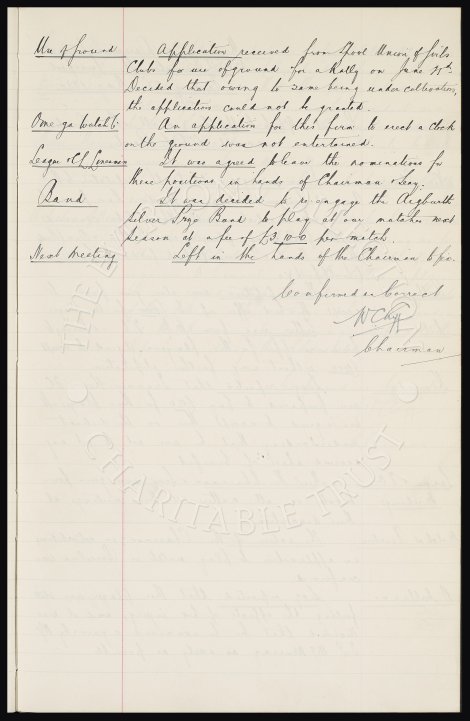 Use of Ground Application received from L'pool Union of Girls
Clubs for use of ground for a Rally on June 25th.
Decided that owing to same being under cultivation,
the application could not be granted.
Ome ga Watch Co An application for this firm to erect a clock
on the ground was not entertained.
League & Ch. It was agreed to leave the nominations for
these positions in hands of Chairman & Secy.
Band It was decided to re-engage the Aigburth
Silver Prize Band to play at our matches next
season at a fee of £3.10.0 per match.
Next Meeting Left in the hands of the Chairman to fix.
Confirmed as Correct
W C Cuff
Chairman
THE
CHARITABLE TRUST